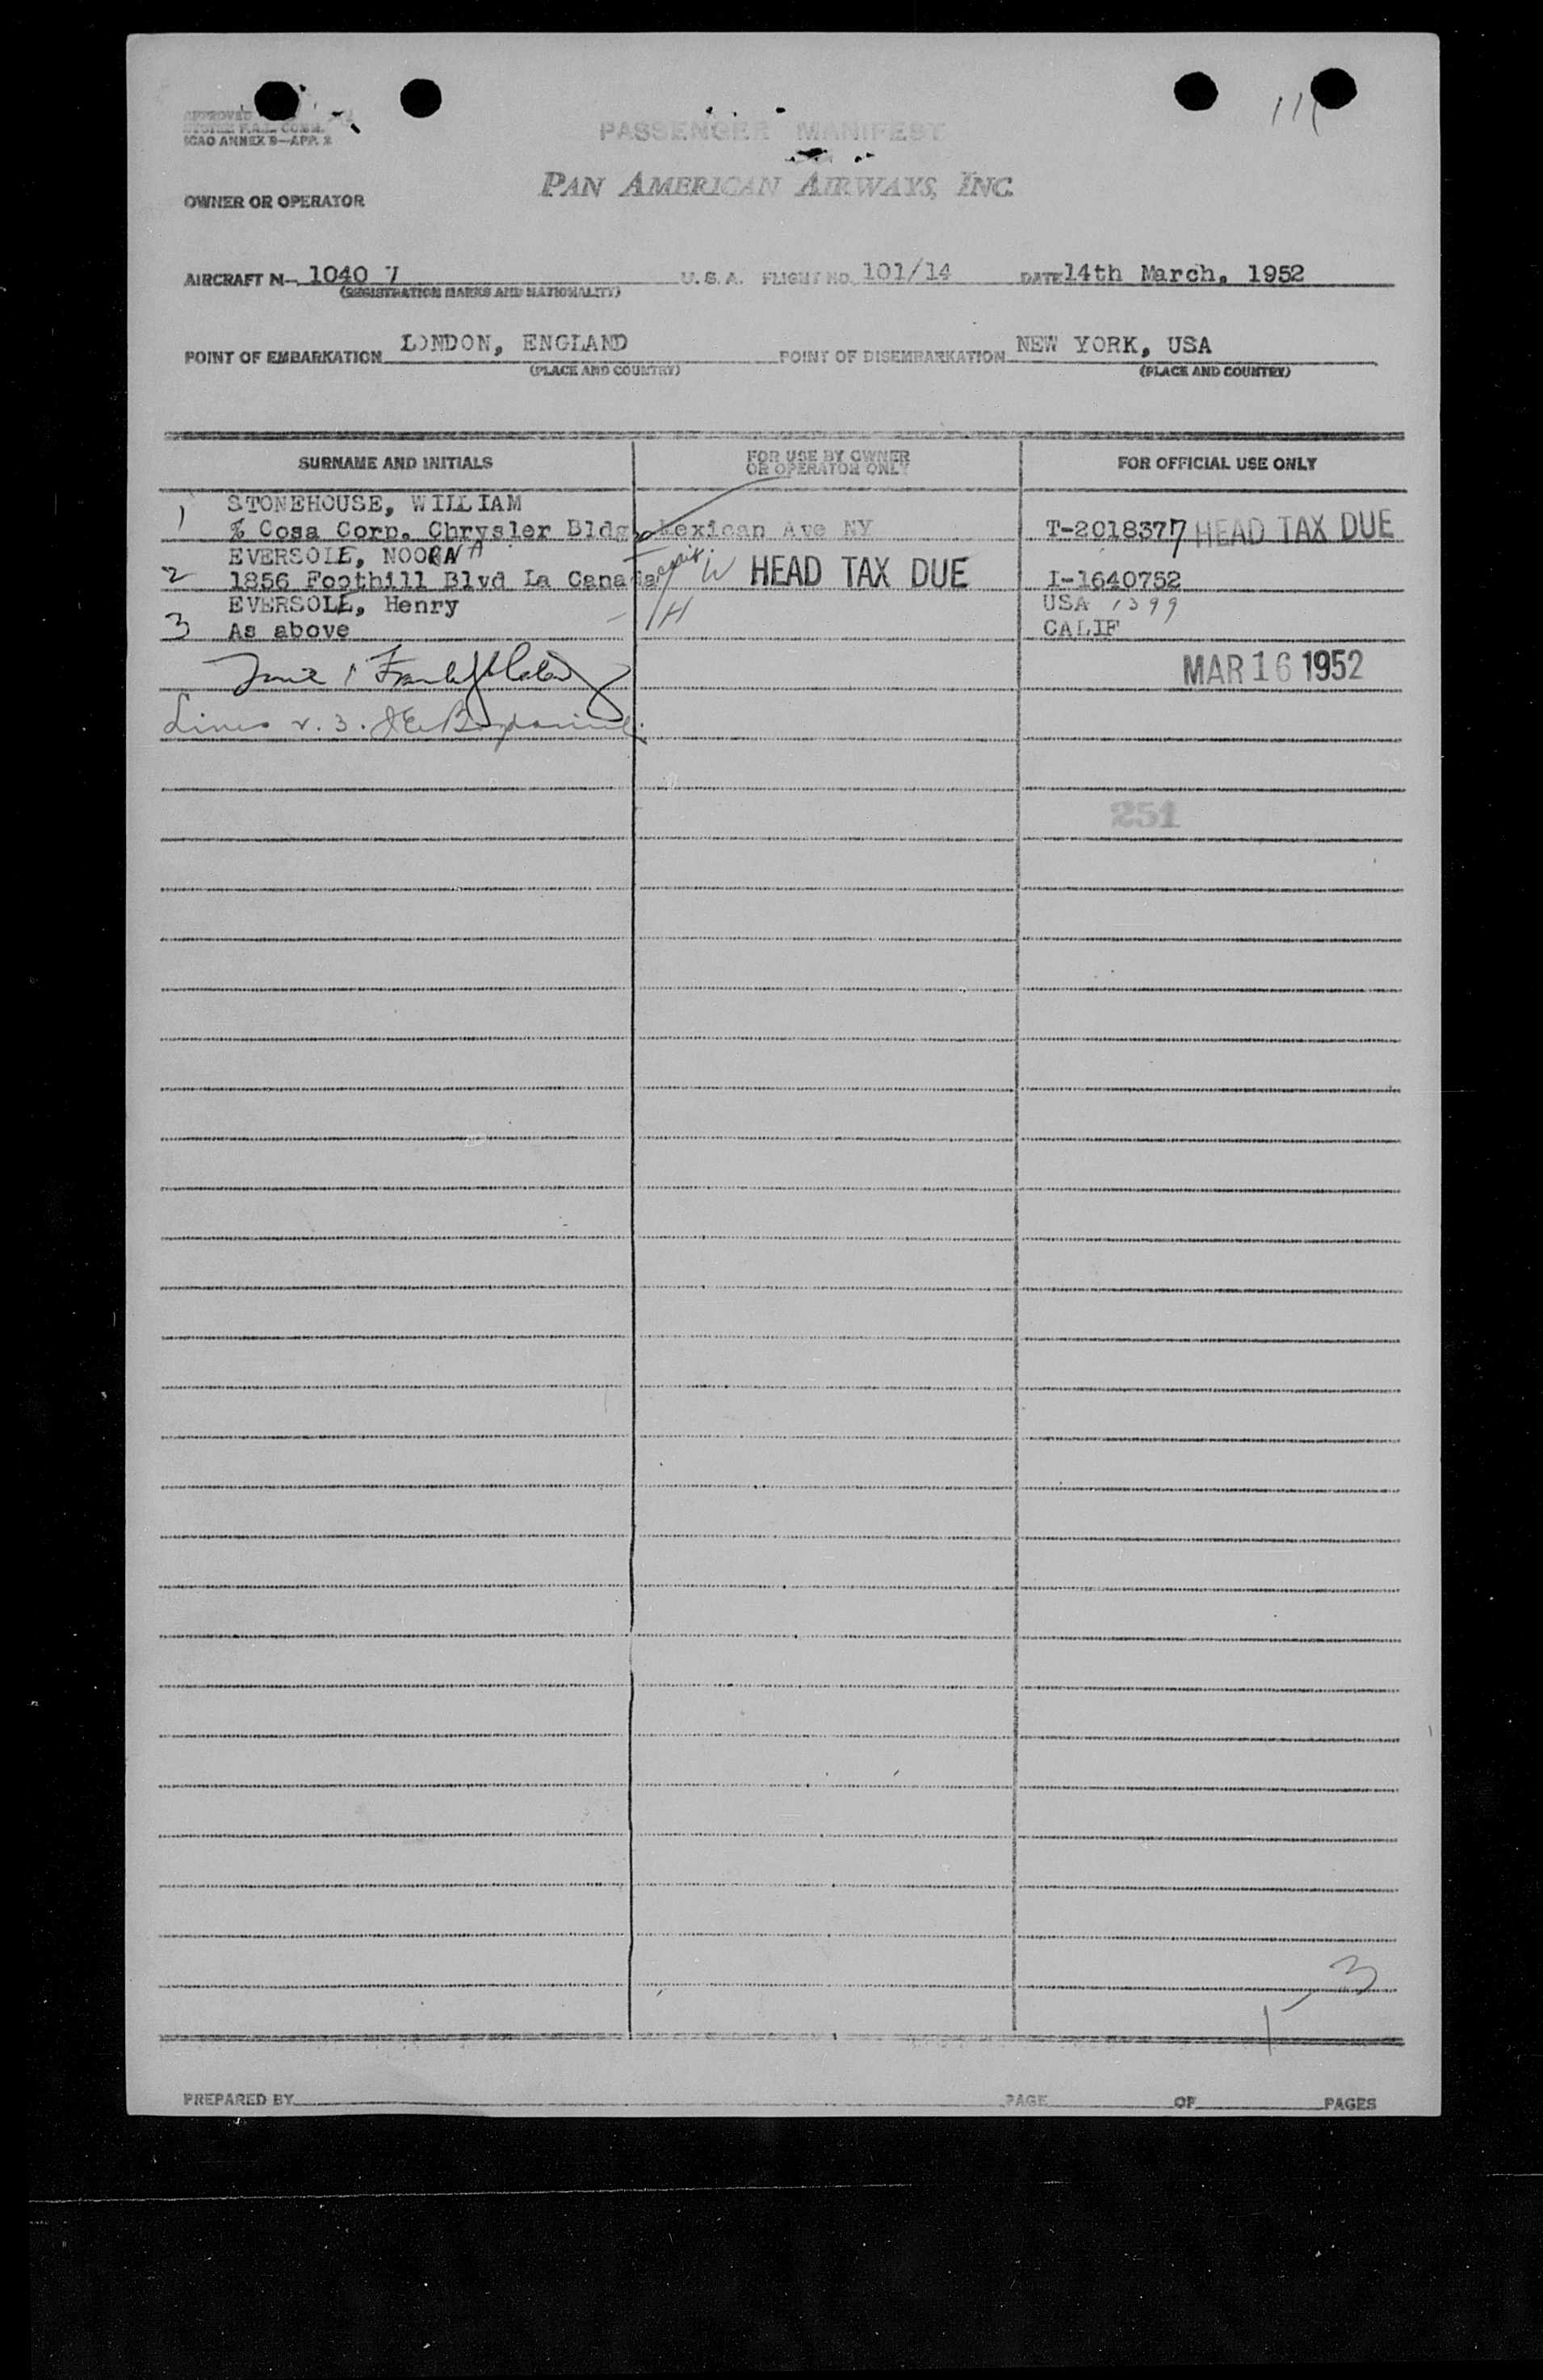 111
APPROVED
ICAO ANNEX 9—APP. 2
PASSENGER MANIFEST
PAN AMERICAN AIRWAYS, INC.
OWNER OR OPERATOR
AIRCRAFT N— 1040 7 U. S. A. FLIGHT NO. 101/14 DATE 14th March, 1952
(REGISTRATION MARKS AND NATIONALITY)
POINT OF EMBARKATION LONDON, ENGLAND POINT OF DISEMBARKATION NEW YORK, USA
(PLACE AND COUNTRY) (PLACE AND COUNTRY)
SURNAME AND INITIALS FOR USE BY OWNER OR OPERATOR ONLY FOR OFFICIAL USE ONLY
1 STONEHOUSE, WILLIAM
% Cosa Corp. Chrysler Bldg. Lexican Ave NY T-2018377 HEAD TAX DUE
EVERSOLE,
2 1856 Foothill Blvd La Canada W HEAD TAX DUE I-1640752
EVERSOLE, Henry H USA 1399
3 As above CALIF
MAR 16 1952
Lines 2. 3.
251
3
1
PREPARED BY PAGE OF PAGES